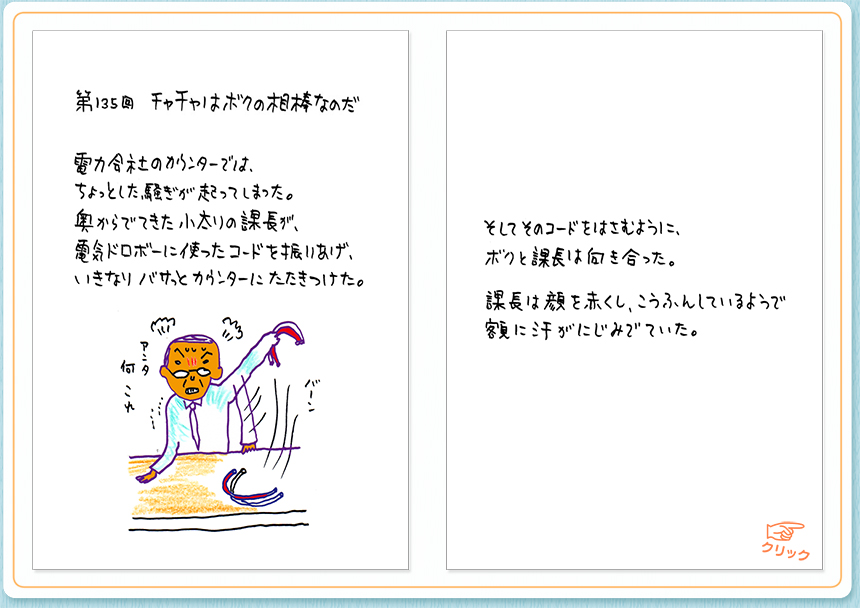 第135回 チャチャはボクの相棒なのだ
電力会社のカウンターでは、
ちょっとした騒ぎが起ってしまった。
奥からでてきた小太りの課長が、
電気ドロボーに使ったコードを振りあげ、
いきなりバサッとカウンターにたたきつけた。
アンタ
何
これ
バーン
そしてそのコードをはさむように、
ボクと課長は向き合った。
課長は顔を赤くし、こうふんしているようで
額に汗がにじみでていた。
クリック